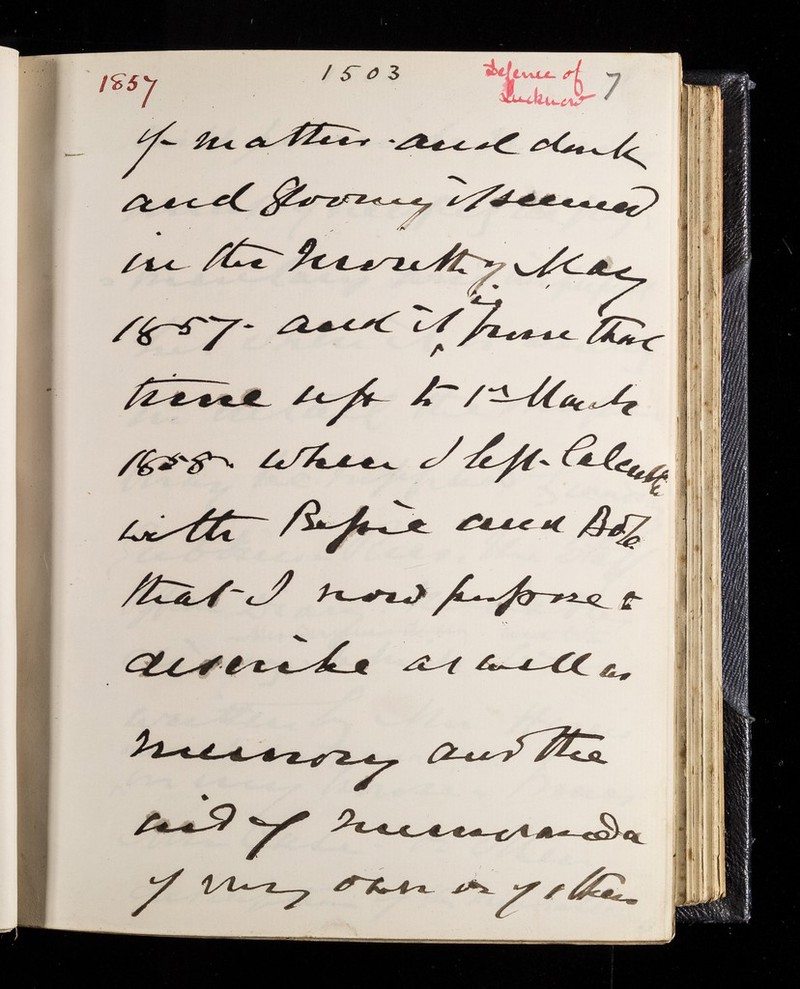 1857 1503 Defence of Lucknow 7
of matters and dark
and gloomy it seemed
in the month of May
1857. and it is from that
time up to 1st March
1858. when I left Calcutta
with Bessie and Bob
that I now purpose to
describe as well as
memory and the
aid of memoranda
of my own or of others